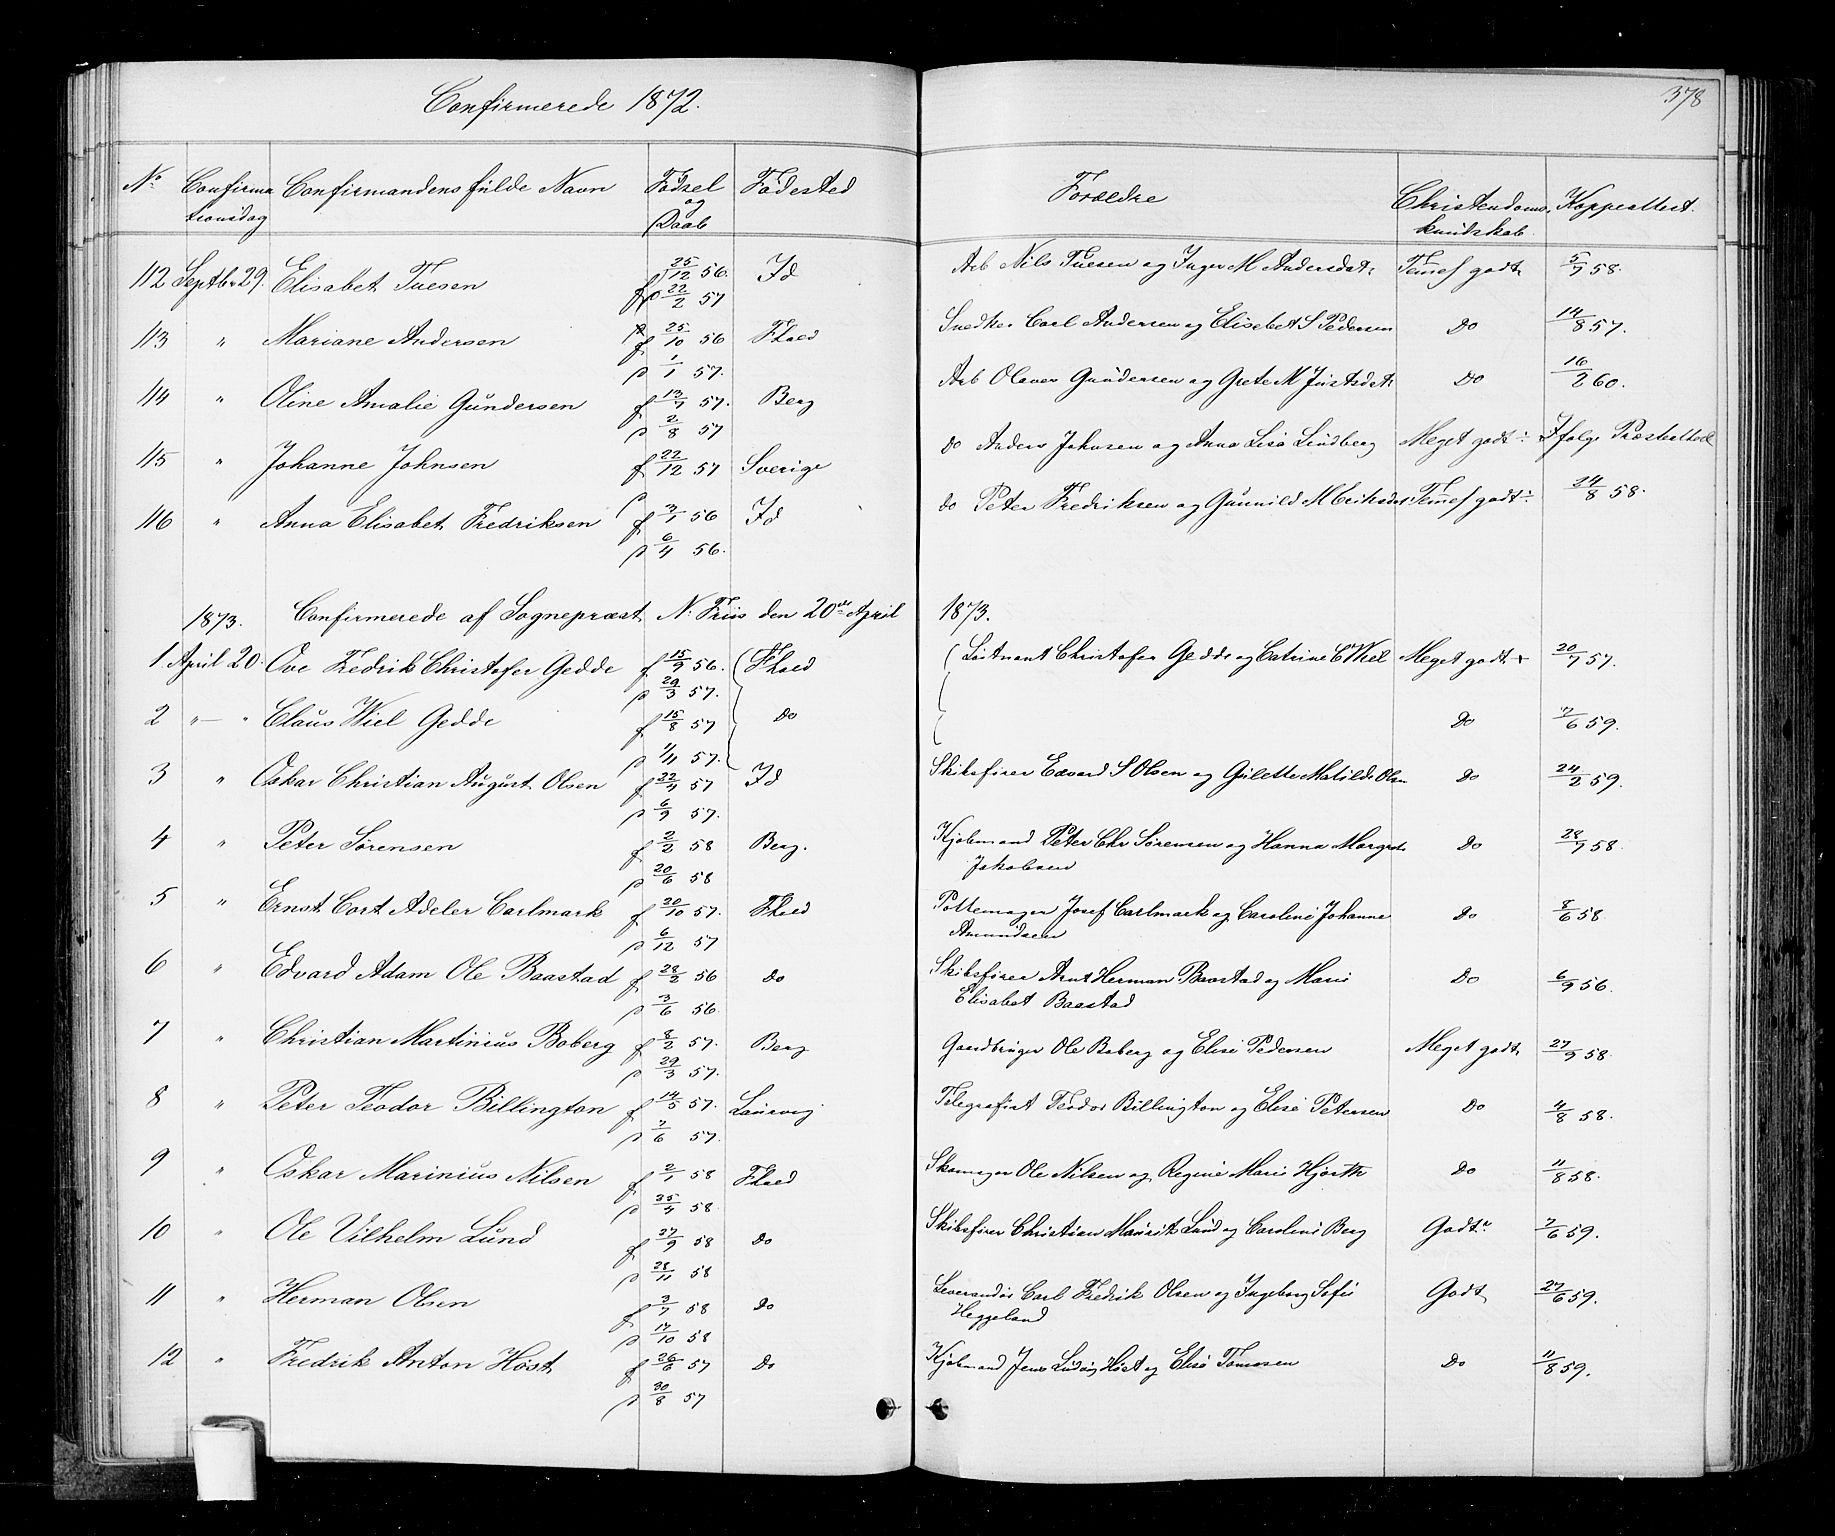 Confirmerede 1872.
378
No Confirma Confirmandens fulde Navn Fødsel Fødested Forældre Christendoms Koppeattest.
tionsdag og Daab kundskab
112 Septbr 29. Elisabet Tuesen f 25/12 56. Id Arb Nils Tuesen og Inger M Andersdatr Temel godt 5/7 58.
d 22/2 57
113 " Mariane Andersen f 25/10 56 Fhald Snedker Carl Andersen og Elisebet S Pedersen Do 14/8 57.
d 1/1 57.
114 " Oline Amalie Gundersen f 13/7 57. Berg Arb Olaves Gundersen og Grete M Justsdatr Do 16/2 60.
d 2/8 57
115 " Johanne Johnsen f 22/12 57 Sverige Do Anders Johnsen og Anna Lisa Lindberg Meget godt Ifølge Præsteattest
d
116 " Anna Elisabet Fredriksen f 3/1 56 Id Do Peter Fredriksen og Gunnild M Eriksdatr Temel godt 24/8 58.
d 6/4 56.
1873. Confirmerede af Sognepræst N. Friis den 20de April 1873.
1 April 20. Ove Fredrik Christofer Gedde f 15/9 56. Fhald Løitnant Christofer Gedde og Catrine C Wiel Meget godt + 20/7 57.
d 29/3 57.
2 " — " Claus Wiel Gedde f 15/8 57 Do Do 7/6 59.
d 1/11 57.
3 " Oskar Christian August Olsen f 22/4 57 Id Skibsfører Edvard S Olsen og Gulette Matilde Olsen Do 24/2 59.
d 6/9 57.
4 " Peter Sørensen f 2/2 58 Berg. Kjøbmand Peter Chr Sørensen og Hanna Margrete Do 28/7 58.
d 20/6 58 Jakobsen
5 " Ernst Cort Adeler Carlmark f 20/10 57. Fhald Pottemager Josef Carlmark og Caroline Johanne Do 8/6 58.
d 6/12 57 Amundsen
6 " Edvard Adam Ole Baastad f 28/2 56 Do Skibsfører Arnt Herman Baastad og Marie Do 6/9 56.
d 3/6 56. Elisabet Baastad
7 " Christian Martinius Boberg f 8/2 57. Berg Gaardbruger Ole Boberg og Elise Pedersen Meget godt 27/9 58.
d 29/3 57.
8 " Peter Teodor Billington f 14/5 57. Laurvig Telegrafist Teodor Billington og Elise Petersen Do 4/8 58.
d 7/6 57.
9 " Oskar Marinius Nilsen f 2/1 58 Fhald Skomager Ole Nilsen og Regine Marie Hjorth Do 11/8 58.
d 25/4 58.
10 " Ole Vilhelm Lund f 27/9 58 Do Skibsfører Christian Maurits Lund og Caroline Berg Godt 7/6 59.
d 28/11 58
11 " Herman Olsen f 3/7 58 Do Leverandør Carl Fredrik Olsen og Ingeborg Sofie Godt 27/6 59.
d 17/10 58 Heggeland
12 " Fredrik Anton Høst f 26/6 57 Do Kjøbmand Jens Ludvig Høst og Elise Tomesen Do 11/8 59.
d 30/8 57